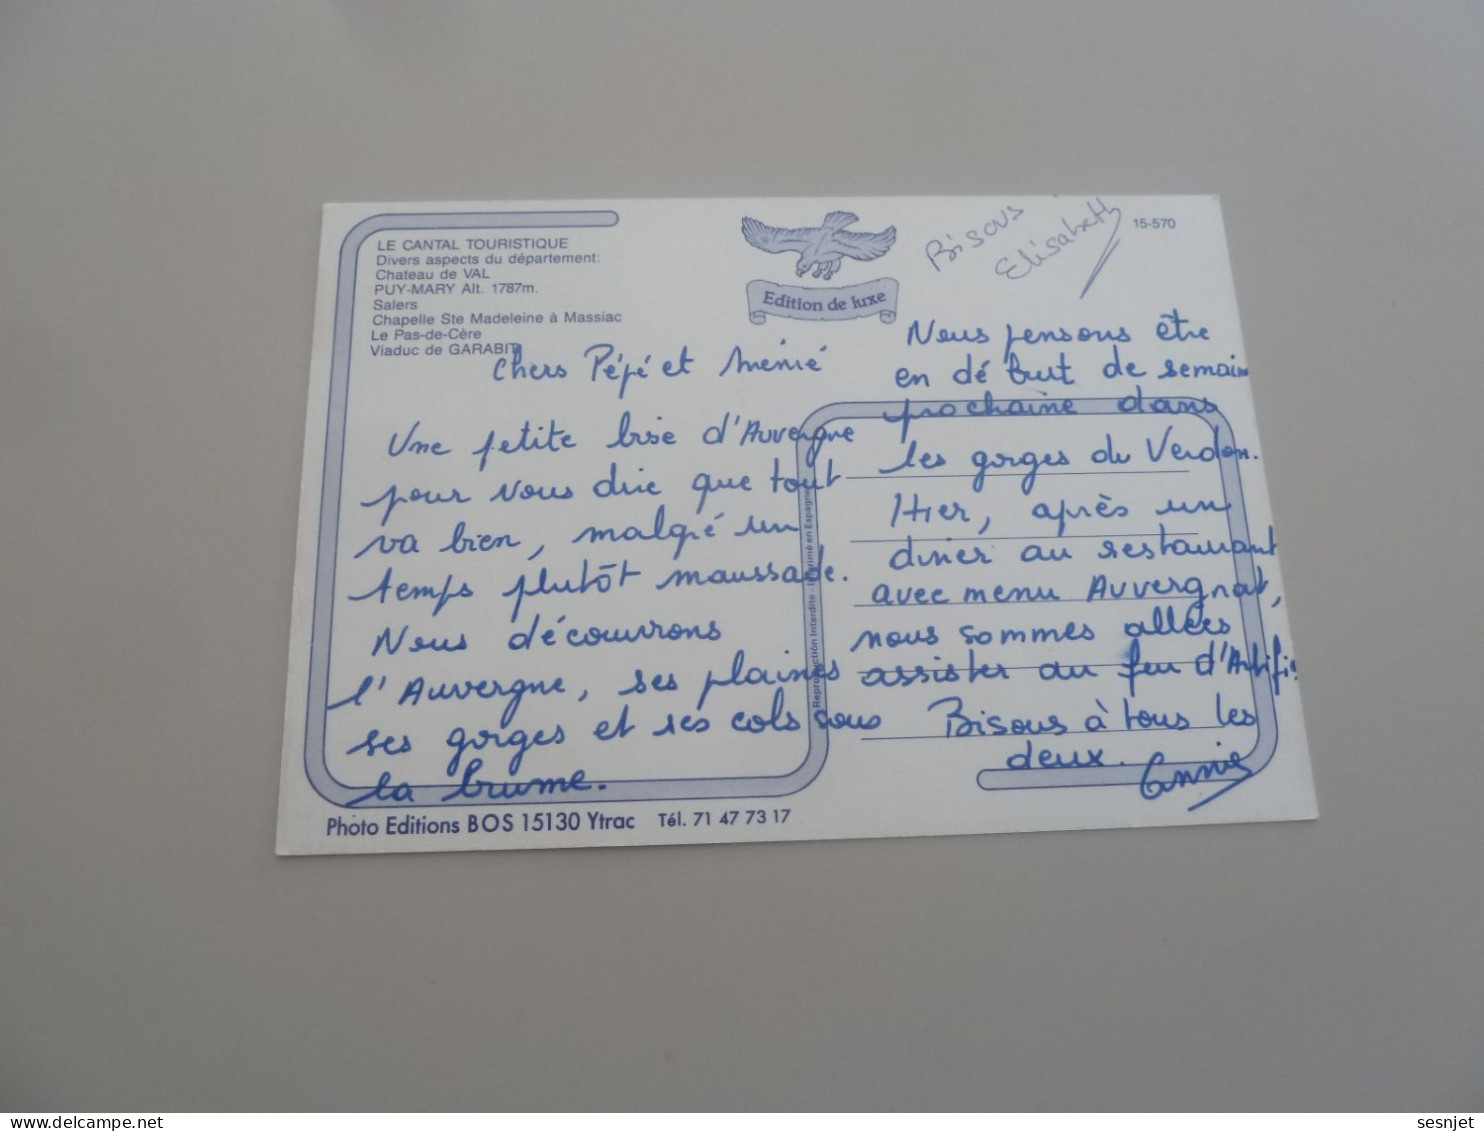 LE CANTAL TOURISTIQUE
Divers aspects du département:
Chateau de VAL
PUY-MARY Alt. 1787m.
Salers
Chapelle Ste Madeleine à Massiac
Le Pas-de-Cère
Viaduc de GARABIT
Edition de luxe
Bisous
Elisabeth
15-570
Chers Pépé et Mémé
Une petite bise d'Auvergne
pour vous dire que tout
va bien, malgré un
temps plutôt maussade.
Nous découvrons
l'Auvergne, ses plaines
ses gorges et ses cols sous
la brume.
Nous pensons être
en début de semaine
prochaine dans
les gorges du Verdon.
Hier, après un
diner au restaurant
avec menu Auvergnat,
nous sommes allées
assister au feu d'Artifi
Bisous à tous les
deux.
Annie
Reproduction Interdite - Imprimé en Espagne
Photo Editions BOS 15130 Ytrac Tél. 71 47 73 17
delcampe.net
sesnjet